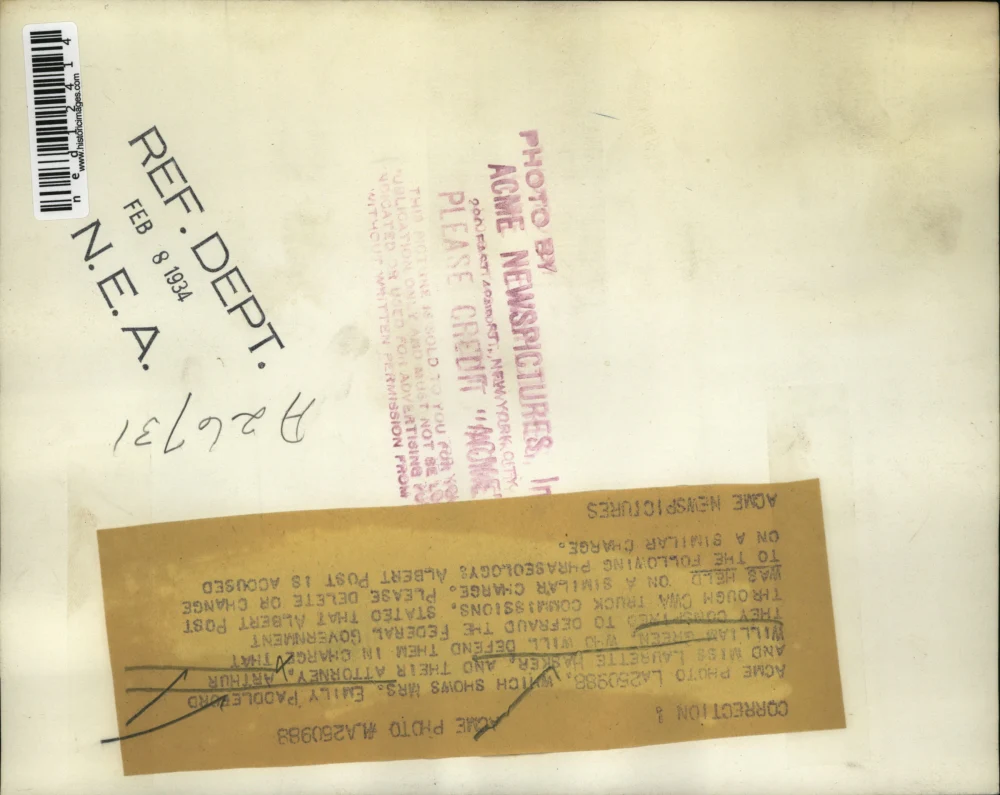 ned12414
www.historicimages.com
REF. DEPT.
FEB 8 1934
N. E. A.
A26731
PHOTO BY
ACME NEWSPICTURES, In
NEW YORK CITY
PLEASE CREDIT "ACME"
THIS PICTURE IS SOLD TO YOU FOR YO
PUBLICATION ONLY AND MUST NOT BE LO
OR USED FOR ADVERTISING PU
WITHOUT WRITTEN PERMISSION FROM
CORRECTION: ACME PHOTO #LA250988
ACME PHOTO LA250988, WHICH SHOWS MRS. EMILY PADDLEFORD
AND MISS LAURETTE HASKER, AND THEIR ATTORNEY, ARTHUR
WILLIAM GREEN, WHO WILL DEFEND THEM IN CHARGE THAT
THEY CONSPIRED TO DEFRAUD THE FEDERAL GOVERNMENT
THROUGH CWA TRUCK COMMISSIONS. STATED THAT ALBERT POST
WAS HELD ON A SIMILAR CHARGE. PLEASE DELETE OR CHANGE
TO THE FOLLOWING PHRASEOLOGY: ALBERT POST IS ACCUSED
ON A SIMILAR CHARGE.
ACME NEWSPICTURES